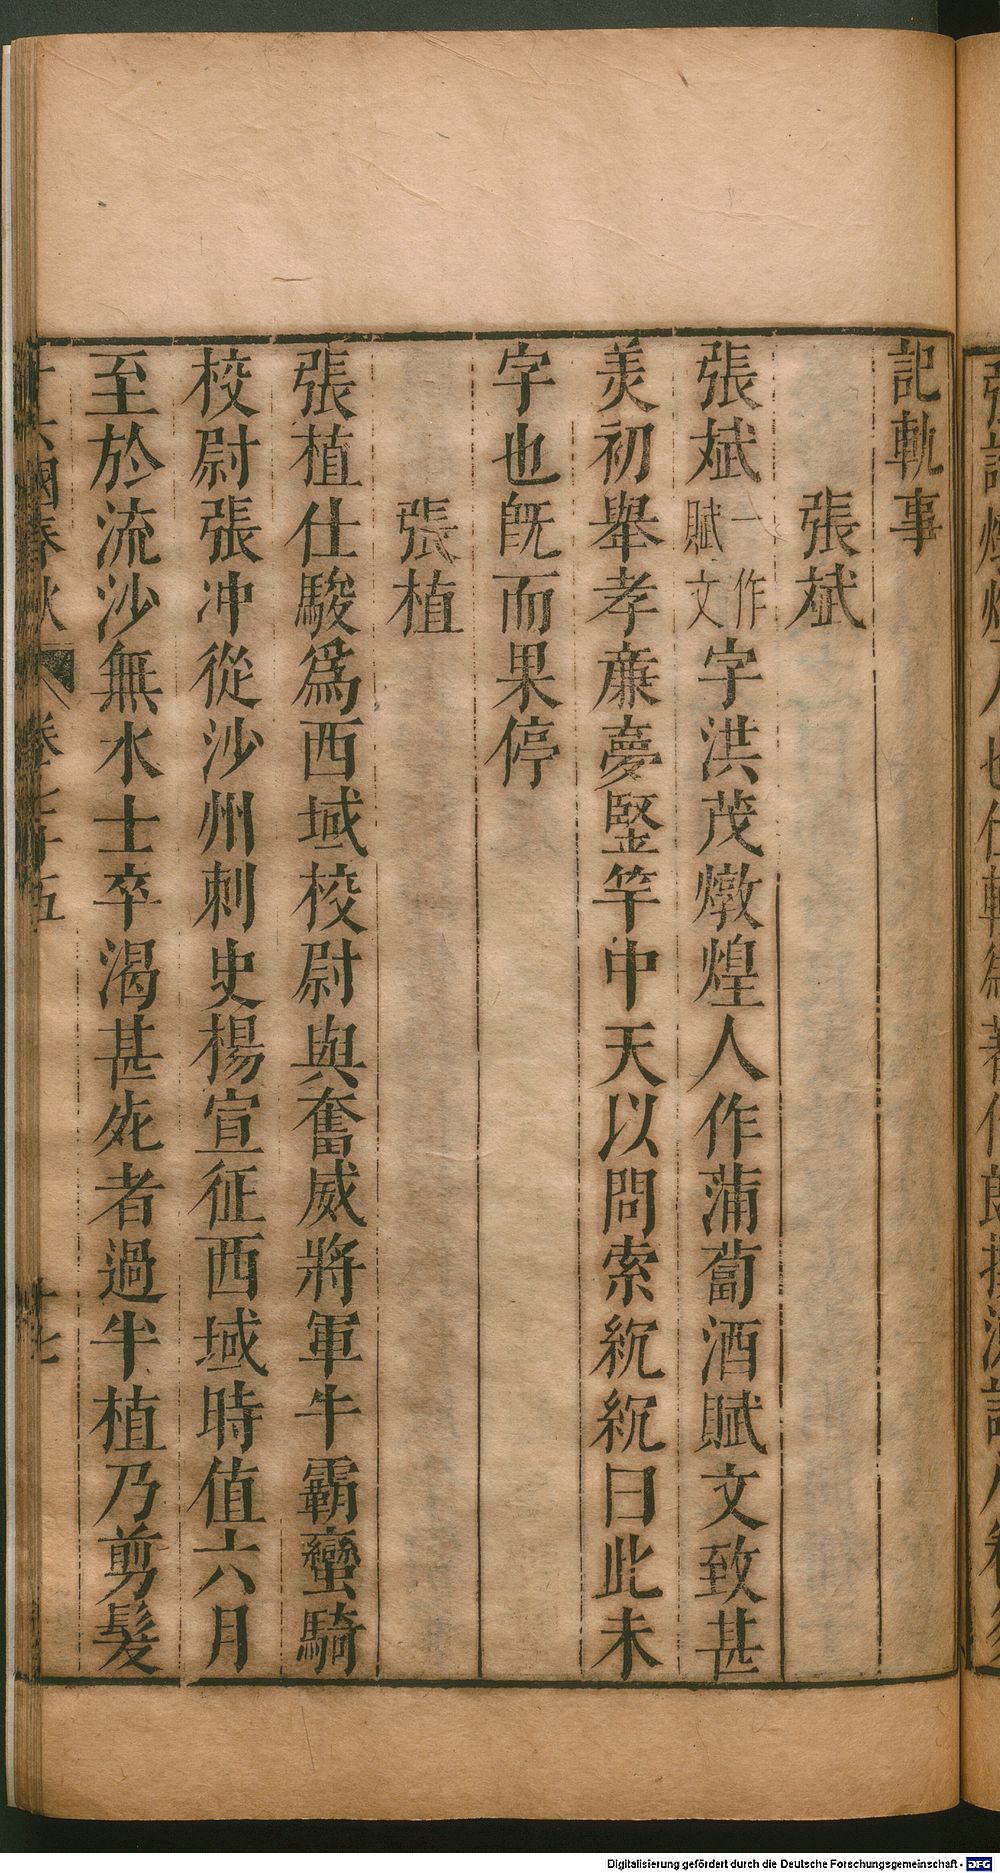 記軌事
張斌
張斌一作賦文字洪茂燉煌人作蒲萄酒賦文致甚
美初舉孝廉夢竪竿中天以問索紞紞曰此未
字也旣而果停
張植
張植仕駿爲西域校尉與奮威將軍牛霸蠻騎
校尉張冲從沙州刺史楊宣征西域時值六月
至於流沙無水士卒渴甚死者過半植乃剪髮
國春秋 卷七十五 十七
Digitalisierung gefördert durch die Deutsche Forschungsgemeinschaft - DFG